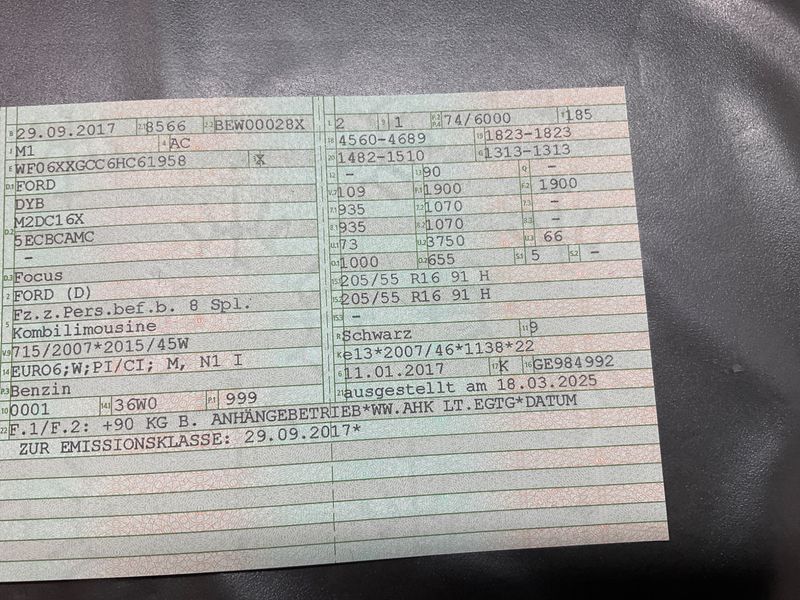 B 29.09.2017 2.1 8566 2.2 BEW00028X
J M1 4 AC
E WF06XXGCC6HC61958 3 X
D.1 FORD
DYB
D.2 M2DC16X
5ECBCAMC
–
D.3 Focus
2 FORD (D)
5 Fz.z.Pers.bef.b. 8 Spl.
Kombilimousine
V.9 715/2007*2015/45W
14 EURO6;W;PI/CI; M, N1 I
P.3 Benzin
10 0001 14.1 36W0 P.1 999
L 2 9 1 P.2 P.4 74/6000 T 185
18 4560-4689 19 1823-1823
20 1482-1510 G 1313-1313
12 – 13 90 Q –
V.7 109 F.1 1900 F.2 1900
7.1 935 7.2 1070 7.3 –
8.1 935 8.2 1070 8.3 –
U.1 73 U.2 3750 U.3 66
O.1 1000 O.2 655 S.1 5 S.2 –
15.1 205/55 R16 91 H
15.2 205/55 R16 91 H
15.3 –
R Schwarz 11 9
K e13*2007/46*1138*22
6 11.01.2017 17 K 16 GE984992
21 ausgestellt am 18.03.2025
22 F.1/F.2: +90 KG B. ANHÄNGEBETRIEB*WW.AHK LT.EGTG*DATUM
ZUR EMISSIONSKLASSE: 29.09.2017*